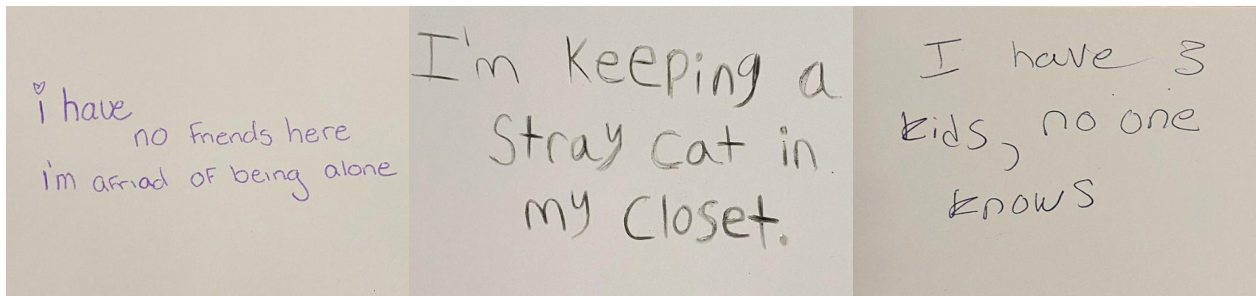 i have
no friends here
i'm afriad of being alone
I'm keeping a
stray cat in
my closet.
I have 3
kids, no one
knows